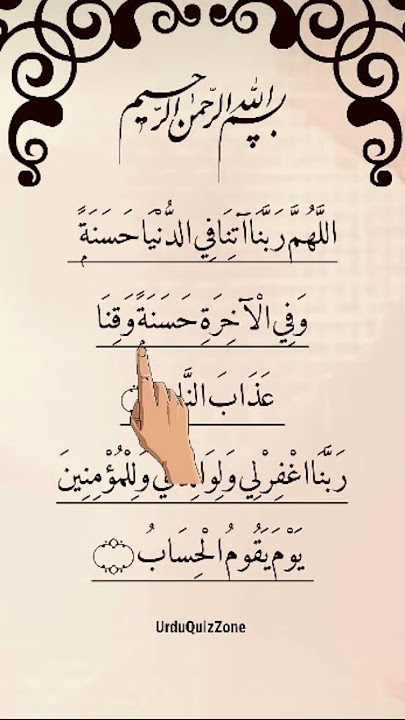 بسم الله الرحمن الرحيم
اللَّهُمَّ رَبَّنَا آتِنَا فِي الدُّنْيَا حَسَنَةً
وَفِي الْآخِرَةِ حَسَنَةً وَقِنَا
عَذَابَ
رَبَّنَا اغْفِرْ لِي وَلِلْمُؤْمِنِينَ
يَوْمَ يَقُومُ الْحِسَابُ
UrduQuizZone